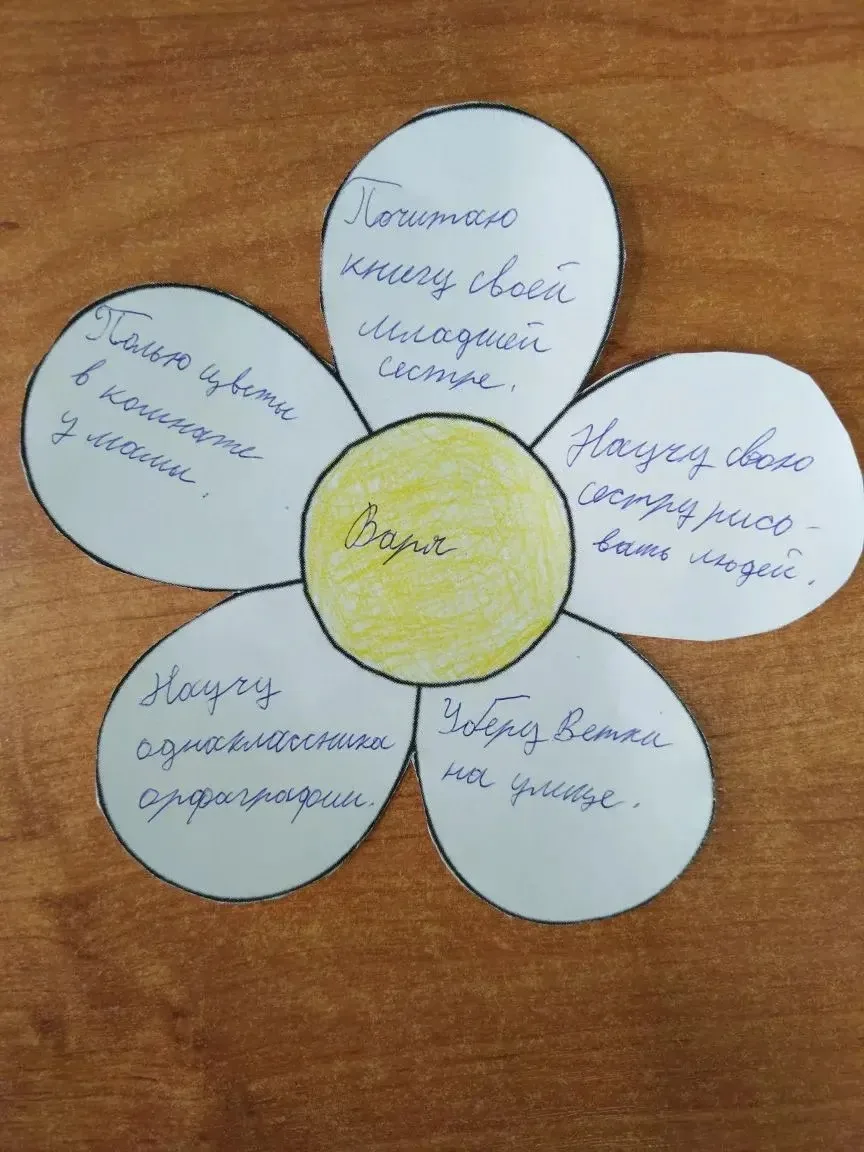 Почитаю
книгу своей
младшей
сестре.
Научу свою
сестру рисо-
вать людей.
Уберу Ветки
на улице.
Научу
одноклассника
орфаграфии.
Полью цветы
в комнате
у мамы.
Варя